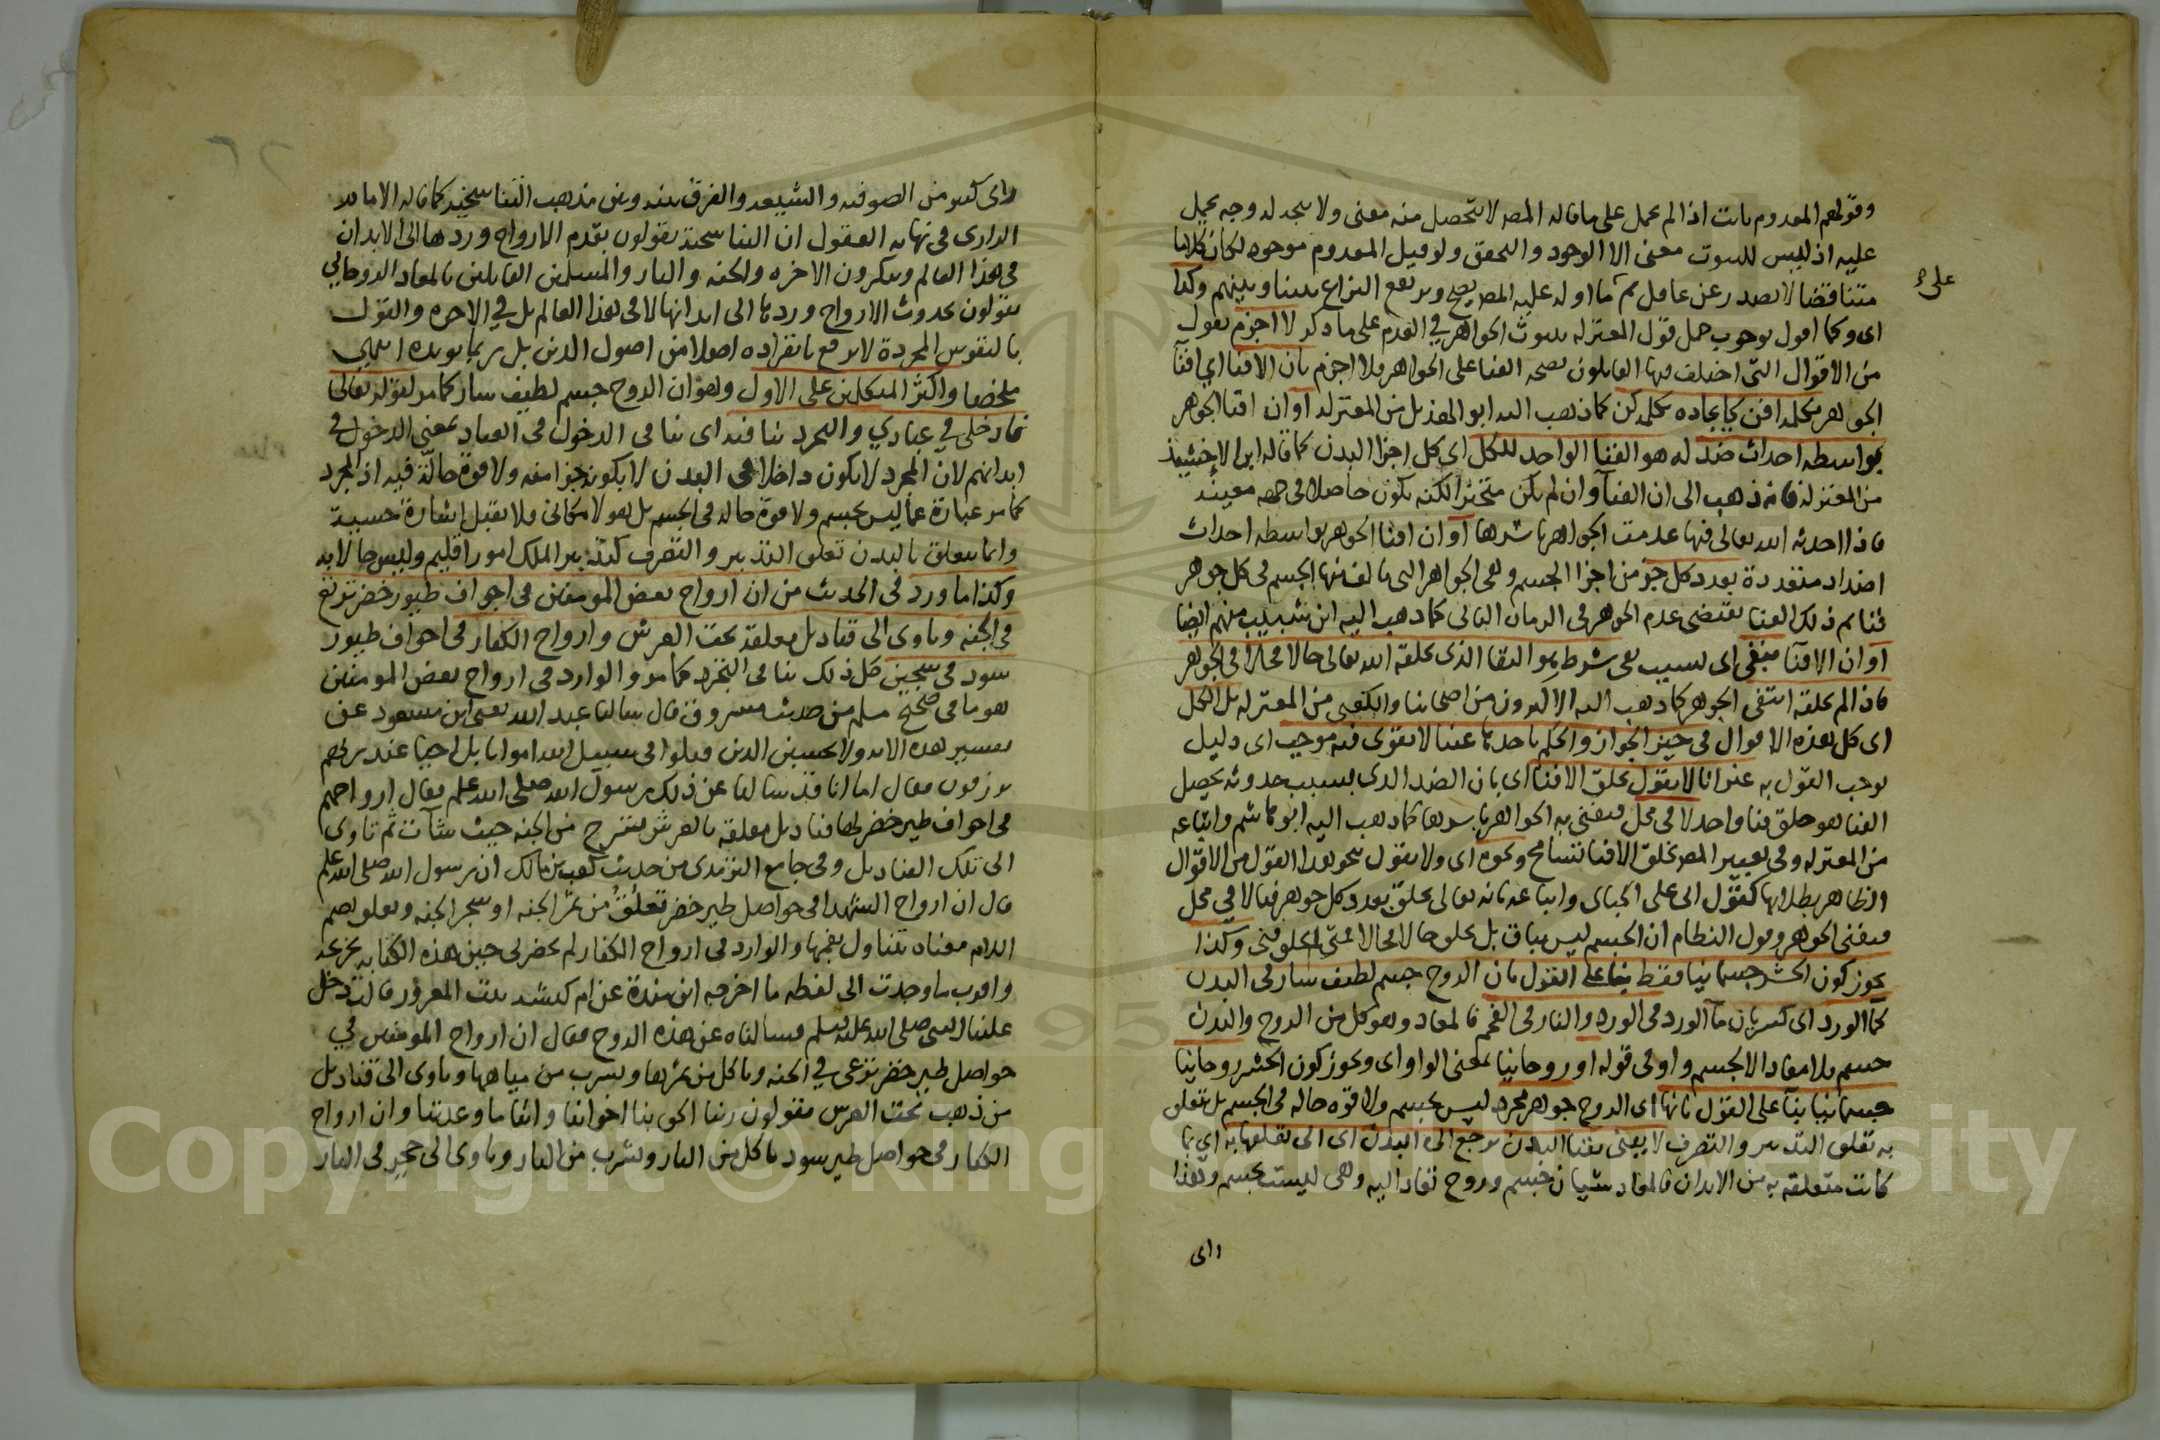 وقولهم المعدوم ثابت اذا لم يحمل على ما قاله المصـ لا يتحصل منه معنى ولا يتجه له وجه يحمل
عليه اذ ليس للثبوت معنى الا الوجود والتحقق ولو قيل المعدوم موجود لكان كلاما
على
متناقضا لا يصدر عن عاقل ثم ما اوله عليه المصـ يصح ويرتفع النزاع بيننا وبينهم وكما
اى وكما اقول بوجوب حمل قول المعتزله بثبوت الجواهر في العدم على ما ذكر لا اجزم بقول
من الاقوال التى اختلف فيها القايلون بصحه الفنا على الجواهر فلا اجزم بان الافنا اي افنا
الجواهر بكلمة افن كايجاده بكلمه كن كما ذهب اليه ابو الهذيل من المعتزله او ان افنا الجوهر
بواسطه احداث ضد له هو الفنا الواحد للكل اى كل اجزا البدن كما قاله ابن الاخشيد
من المعتزلة فانه ذهب الى ان الفنا وان لم يكن متحيزا لكنه يكون حاصلا فى جهه معينه
فاذا احدثه الله تعالى فيها عدمت الجواهر باسرها او ان افنا الجوهر بواسطه احداث
اضداد متعددة بعدد كل جزء من اجزا الجسم وهى الجواهر التى تالف منها الجسم فى كل جوهر
فنا ثم ذلك الفنا يقتضى عدم الجوهر فى الزمان الثانى كما ذهب اليه ابن شبيب منهم ايضا
او ان الافنا منتفى اى بسبب نفى شرط هو البقا الذى يخلقه الله تعالى حالا فحالا فى الجوهر
فاذا لم يخلقه انتفى الجوهر كما ذهب اليه الاكثرون من اصحابنا والكعبى من المعتزله بل الكل
اى كل هذه الاقوال فى حيز الجواز والحكم باحدها عينا لا يقوى فيه موجب اى دليل
يوجب القول به عنوانا لا بقول بخلق الافنا اى بان الضد الذى بسبب حدوثه يحصل
الفنا هو خلق فنا واحد لا فى محل فيفنى به الجواهر باسرها كما ذهب اليه ابو هاشم واتباعه
من المعتزله وفى تعبير المصـ بخلق الافنا تسامح ونحوه اى ولا بقول نحو هذا القول من الاقوال
الظاهر بطلانها كقول ابى على الجباى واتباعه بانه تعالى يخلق بعدد كل جوهر فنا لا في محل
فيفنى الجوهر وقول النظام ان الجسم ليس بباق بل يخلق حالا فحالا فمتى لم يخلق فنى وكذا
يجوز كون الحشر جسمانيا فقط بنا على القول بان الروح جسم لطيف سار فى البدن
كما الورد اى كسريان ما الورد فى الورد والنار فى الفحم فالمعاد وهو كل من الروح والبدن
جسم فلا معاد الا الجسم و او فى قوله او روحانيا بمعنى الواو اى ويجوز كون الحشر روحانيا
جسمانيا بنا على القول بانها اى الروح جوهر مجرد ليس بجسم ولا قوه حاله فى الجسم بل تتعلق
به تعلق التدبير والتصرف لا يفنى بفنا البدن ترجع الى البدن اى الى تعلقها به اي بما
كانت متعلقه به من الابدان فالمعاد شيان جسم وروح تعاد اليه وهى ليست بجسم وهذا
راى
راى كثير من الصوفيه والشيعه والفرق بينه وبين مذهب التناسخيه كما قاله الامام
الرازى فى نهايه العقول ان التناسخية يقولون بقدم الارواح وردها الى الابدان
فى هذا العالم وينكرون الاخره والجنه والنار والمسلمين القايلين بالمعاد الروحانى
يقولون بحدوث الارواح وردها الى ابدانها لا فى هذا العالم بل في الاخره والقول
بالنفوس المجردة لا يرفع بانفراده اصلا من اصول الدين بل ربما يويده انتهى
ملخصا واكثر المتكلمين على الاول وهو ان الروح جسم لطيف سار كما مر لقوله تعالى
فادخلى في عبادي والتجرد ينافيه اى ينافى الدخول فى العباد بمعنى الدخول في
ابدانهم لان المجرد لا يكون داخلا فى البدن لا بكونه جزا منه ولا قوة حالّة فيه اذ المجرد
كما مر عبارة عما ليس بجسم ولا قوة حاله فى الجسم بل هو لا مكانى ولا يقبل اشارة حسية
وانما يتعلق بالبدن تعلق التدبير والتصرف كتدبير الملك امور اقليم وليس حالا به
وكذا ما ورد فى الحديث من ان ارواح بعض المومنين فى اجواف طيور خضر ترتع
فى الجنه وتاوى الى قناديل معلقة تحت العرش وارواح الكفار فى اجواف طيور
سود فى سجين كل ذلك ينافى التجرد كما مر والوارد فى ارواح بعض المومنين
هو ما فى صحيح مسلم من حديث مسروق قال سالنا عبد الله يعنى ابن مسعود عن
تفسير هذه الايه ولا تحسبن الذين قتلوا فى سبيل الله امواتا بل احيا عند ربهم
يرزقون فقال اما انا قد سالنا عن ذلك رسول الله صلى الله علم فقال ارواحهم
فى اجواف طير خضر لها قناديل معلقه بالعرش تسرح من الجنه حيث شآت ثم تاوى
الى تلك القناديل وفى جامع الترمذى من حديث كعب بن مالك ان رسول الله صلى الله علم
قال ان ارواح الشهدا فى حواصل طير خضر تعلُقُ من ثمر الجنه او شجر الجنه وتعلق بضم
اللام معناه تتناول بفمها والوارد فى ارواح الكفار لم يحضرنى حين هذه الكتابه تخريجه
واقرب ما وجدت الى لفظه ما اخرجه ابن مندة عن ام كبشه بنت المعرور قالت دخل
علينا النبى صلى الله عليه وسلم فسالناه عن هذه الروح فقال ان ارواح المومنين في
حواصل طير خضر ترعى في الجنه وتاكل من ثمرها وتشرب من مياهها وتاوى الى قناديل
من ذهب تحت العرش يقولون ربنا الحق بنا اخواننا واتنا ما وعدتنا وان ارواح
الكفار فى حواصل طير سود تاكل من النار وتشرب من النار وتاوى الى جحر فى النار
Copyright © King Saud University